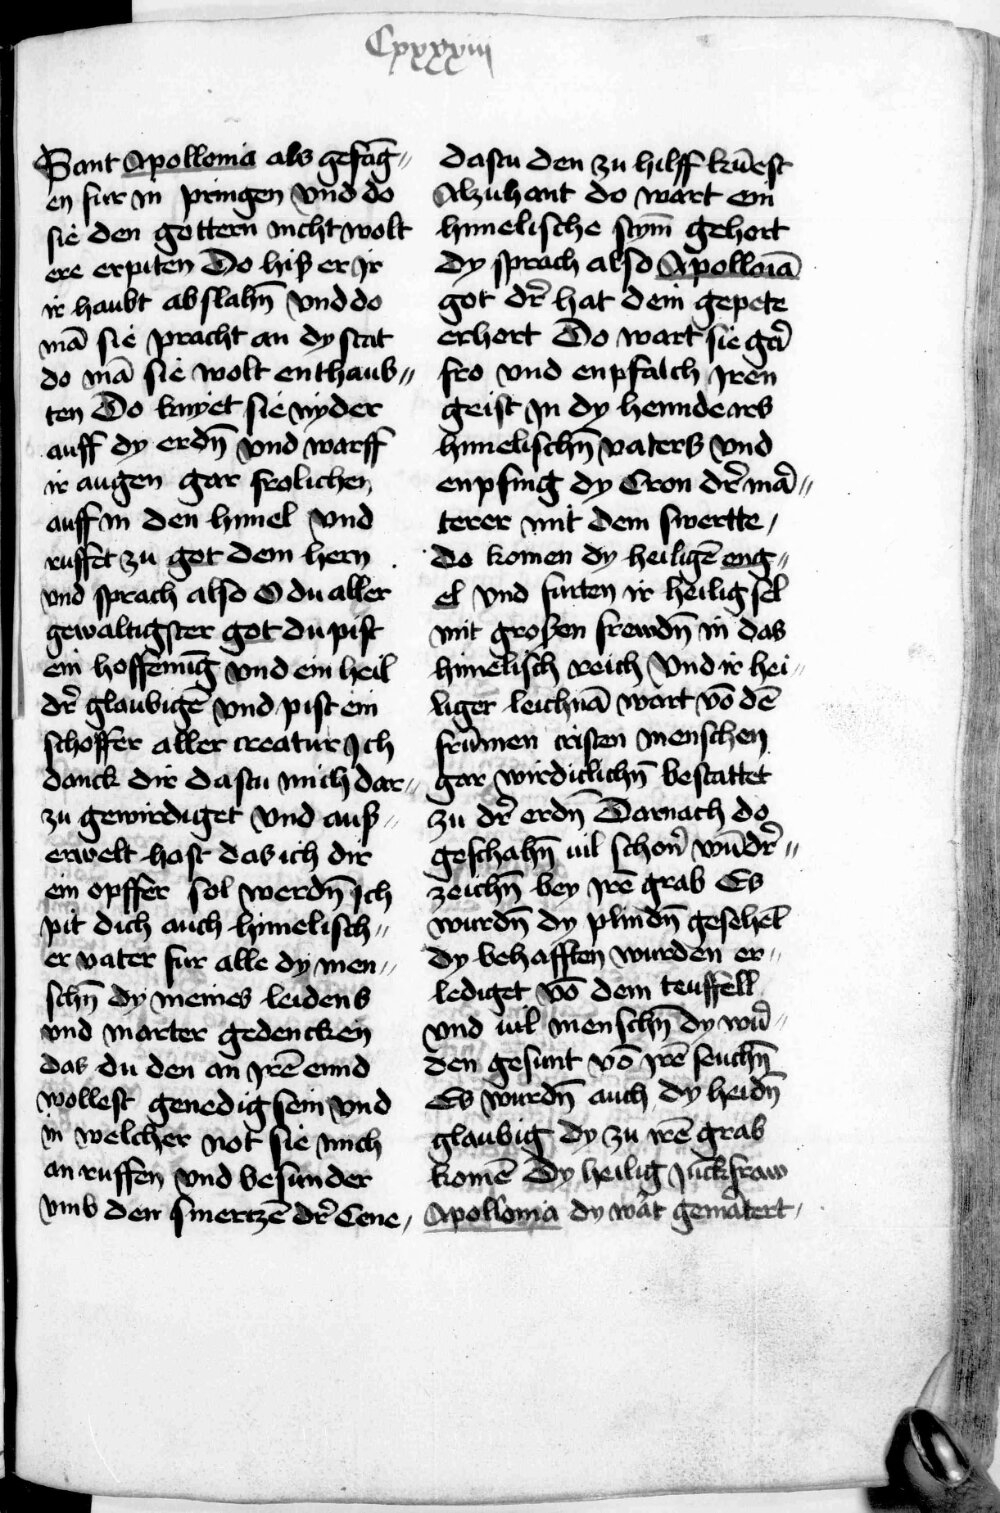 Cxxxxxxiii
Sant Apollonia als gefāg〃
en fur in pringen vnd do
sie den gottern nicht wolt
ere erpiten Do hiß er Jr
ir haubt abslahn̄ Vnd do
mā sie pracht an dy stat
do mā sie wolt enthaub〃
ten Do knyet sie nyder
auff dy erdn̄ vnd warff
ir augen gar frolichen
auff in den himel Vnd
ruffet zu got dem hern
vnd sprach also O du aller
gewaltigster got du pist
ein hoffenūg vnd ein heil
dr̄ glaubigē vnd pist ein
schoffer aller creatur Jch
danck dir dastu mich dar〃
zu gewirdiget Vnd auß〃
erwelt hast das ich dir
ein opffer sol werdn̄ Jch
pit dich auch himelisch〃
er vater fur alle dy men〃
schn̄ dy meines leidens
vnd marter gedencken
das du den an jrē ennd
wollest genedig sein Vnd
in welcher not sie mich
an ruffen vnd besunder
vmb den smertzē dr̄ Cene〃
dastu den zu hilff kūest
Alzuhant do wart ein
himelische stym̄ gehort
dy sprach also Apolloīā
got dr̄ hat dein gepete
erhort Do wart sie gar̄
fro vnd enpfalch jren
geist in dy henndears
himelischn̄ vaters Vnd
enpfing dy Cron dr̄ mā〃
terer mit dem swertte /
do komen dy heiligē eng〃
el vnd furten ir heilig sel
mit großen frewdn̄ in das
himelisch reich Vnd ir hei〃
liger leichnā wart vō dē
frūmen cristen menschen
gar wirdiclichn̄ bestattet
zu dr̄ erdn̄ Darnach do
geschahn̄ vil schon̄ wūdr̄〃
zeichn̄ bey jrē grab Es
wurdn̄ dy plindn̄ gesehēt
dy behafften wurden er〃
lediget vō dem teuffell
vnd vil menschn̄ dy wur̄〃
den gesunt vō jrē seuchn̄
Es wurdn̄ auch dy heidn̄
glaubig dy zu irē grab
komē Dy heilig Jūckfraw
Apollonia dy wāt gemātert〃